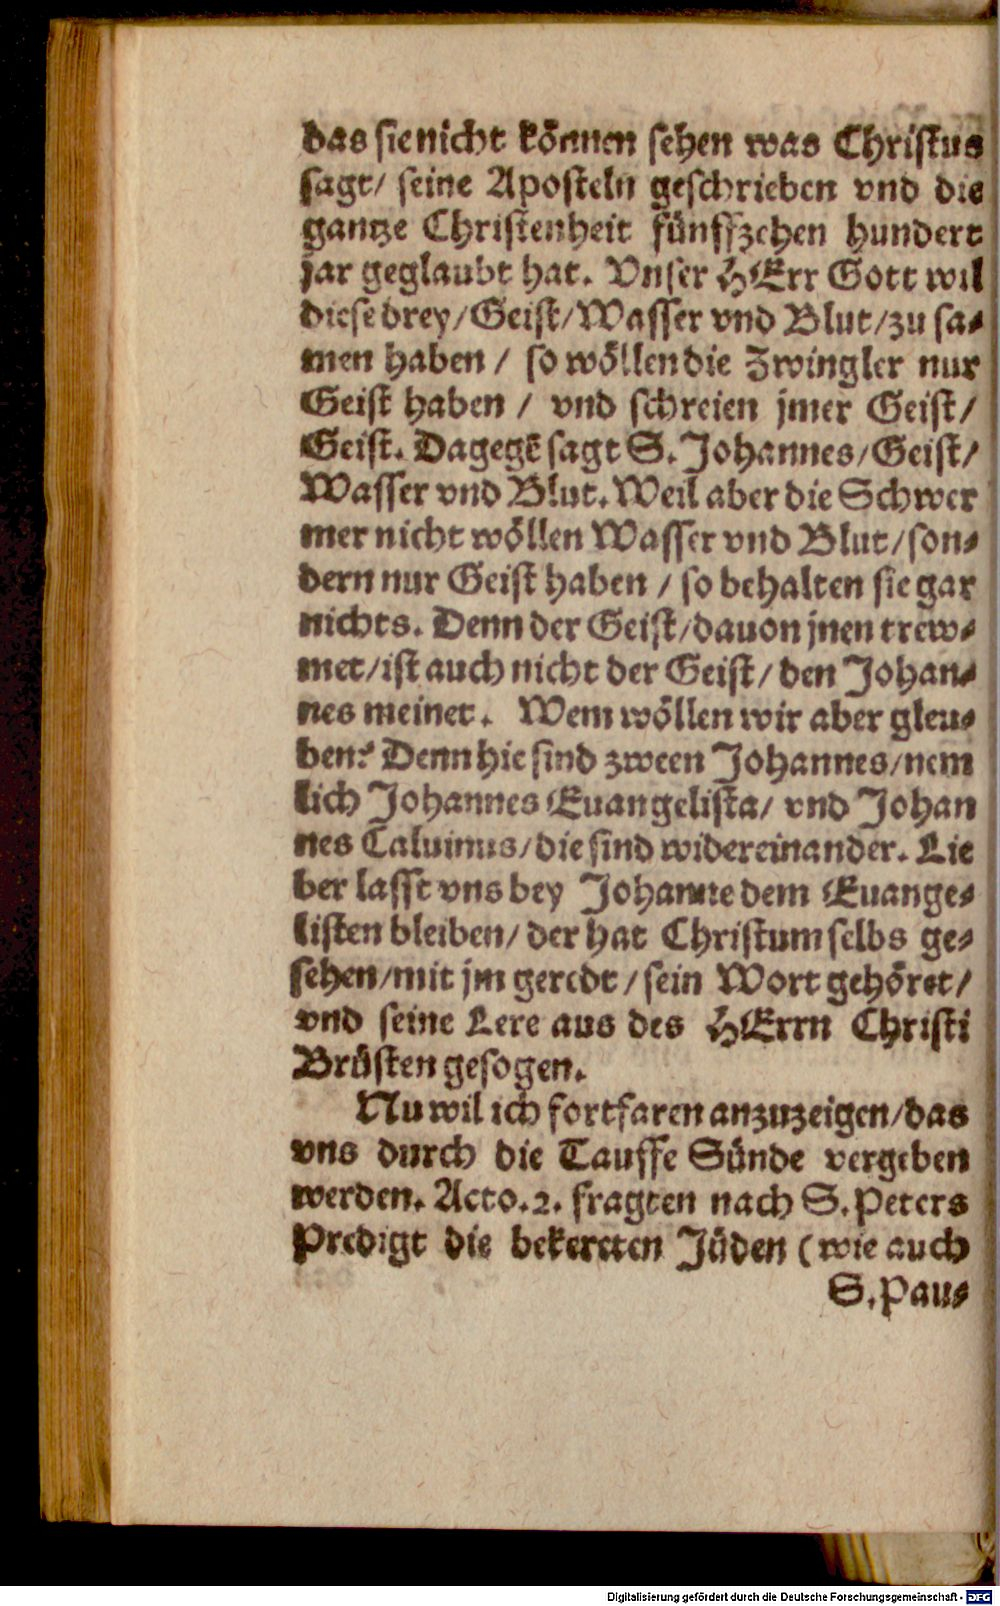 das sie nicht können sehen was Christus
sagt/ seine Aposteln geschrieben vnd die
gantze Christenheit fünffzehen hundert
jar geglaubt hat. Vnser HErr Gott wil
diese drey/Geist/Wasser vnd Blut/zu sa⸗
men haben / so wöllen die Zwingler nur
Geist haben / vnd schreien jmer Geist/
Geist. Dagegē sagt S. Johannes/Geist/
Wasser vnd Blut. Weil aber die Schwer
mer nicht wöllen Wasser vnd Blut/son⸗
dern nur Geist haben / so behalten sie gar
nichts. Denn der Geist/dauon jnen trew⸗
met/ist auch nicht der Geist/ den Johan⸗
nes meinet. Wem wöllen wir aber gleu⸗
ben? Denn hie sind zween Johannes/nem
lich Johannes Euangelista/ vnd Johan
nes Caluinus/die sind widereinander. Lie
ber lasst vns bey Johanne dem Euange⸗
listen bleiben/ der hat Christum selbs ge⸗
sehen/mit jm geredt/sein Wort gehöret/
vnd seine Lere aus des HErrn Christi
Brüsten gesogen.
Nu wil ich fortfaren anzuzeigen/das
vns durch die Tauffe Sünde vergeben
werden. Acto.2. fragten nach S. Peters
Predigt die bekereten Jüden (wie auch
S. Pau⸗
Digitalisierung gefördert durch die Deutsche Forschungsgemeinschaft - DFG